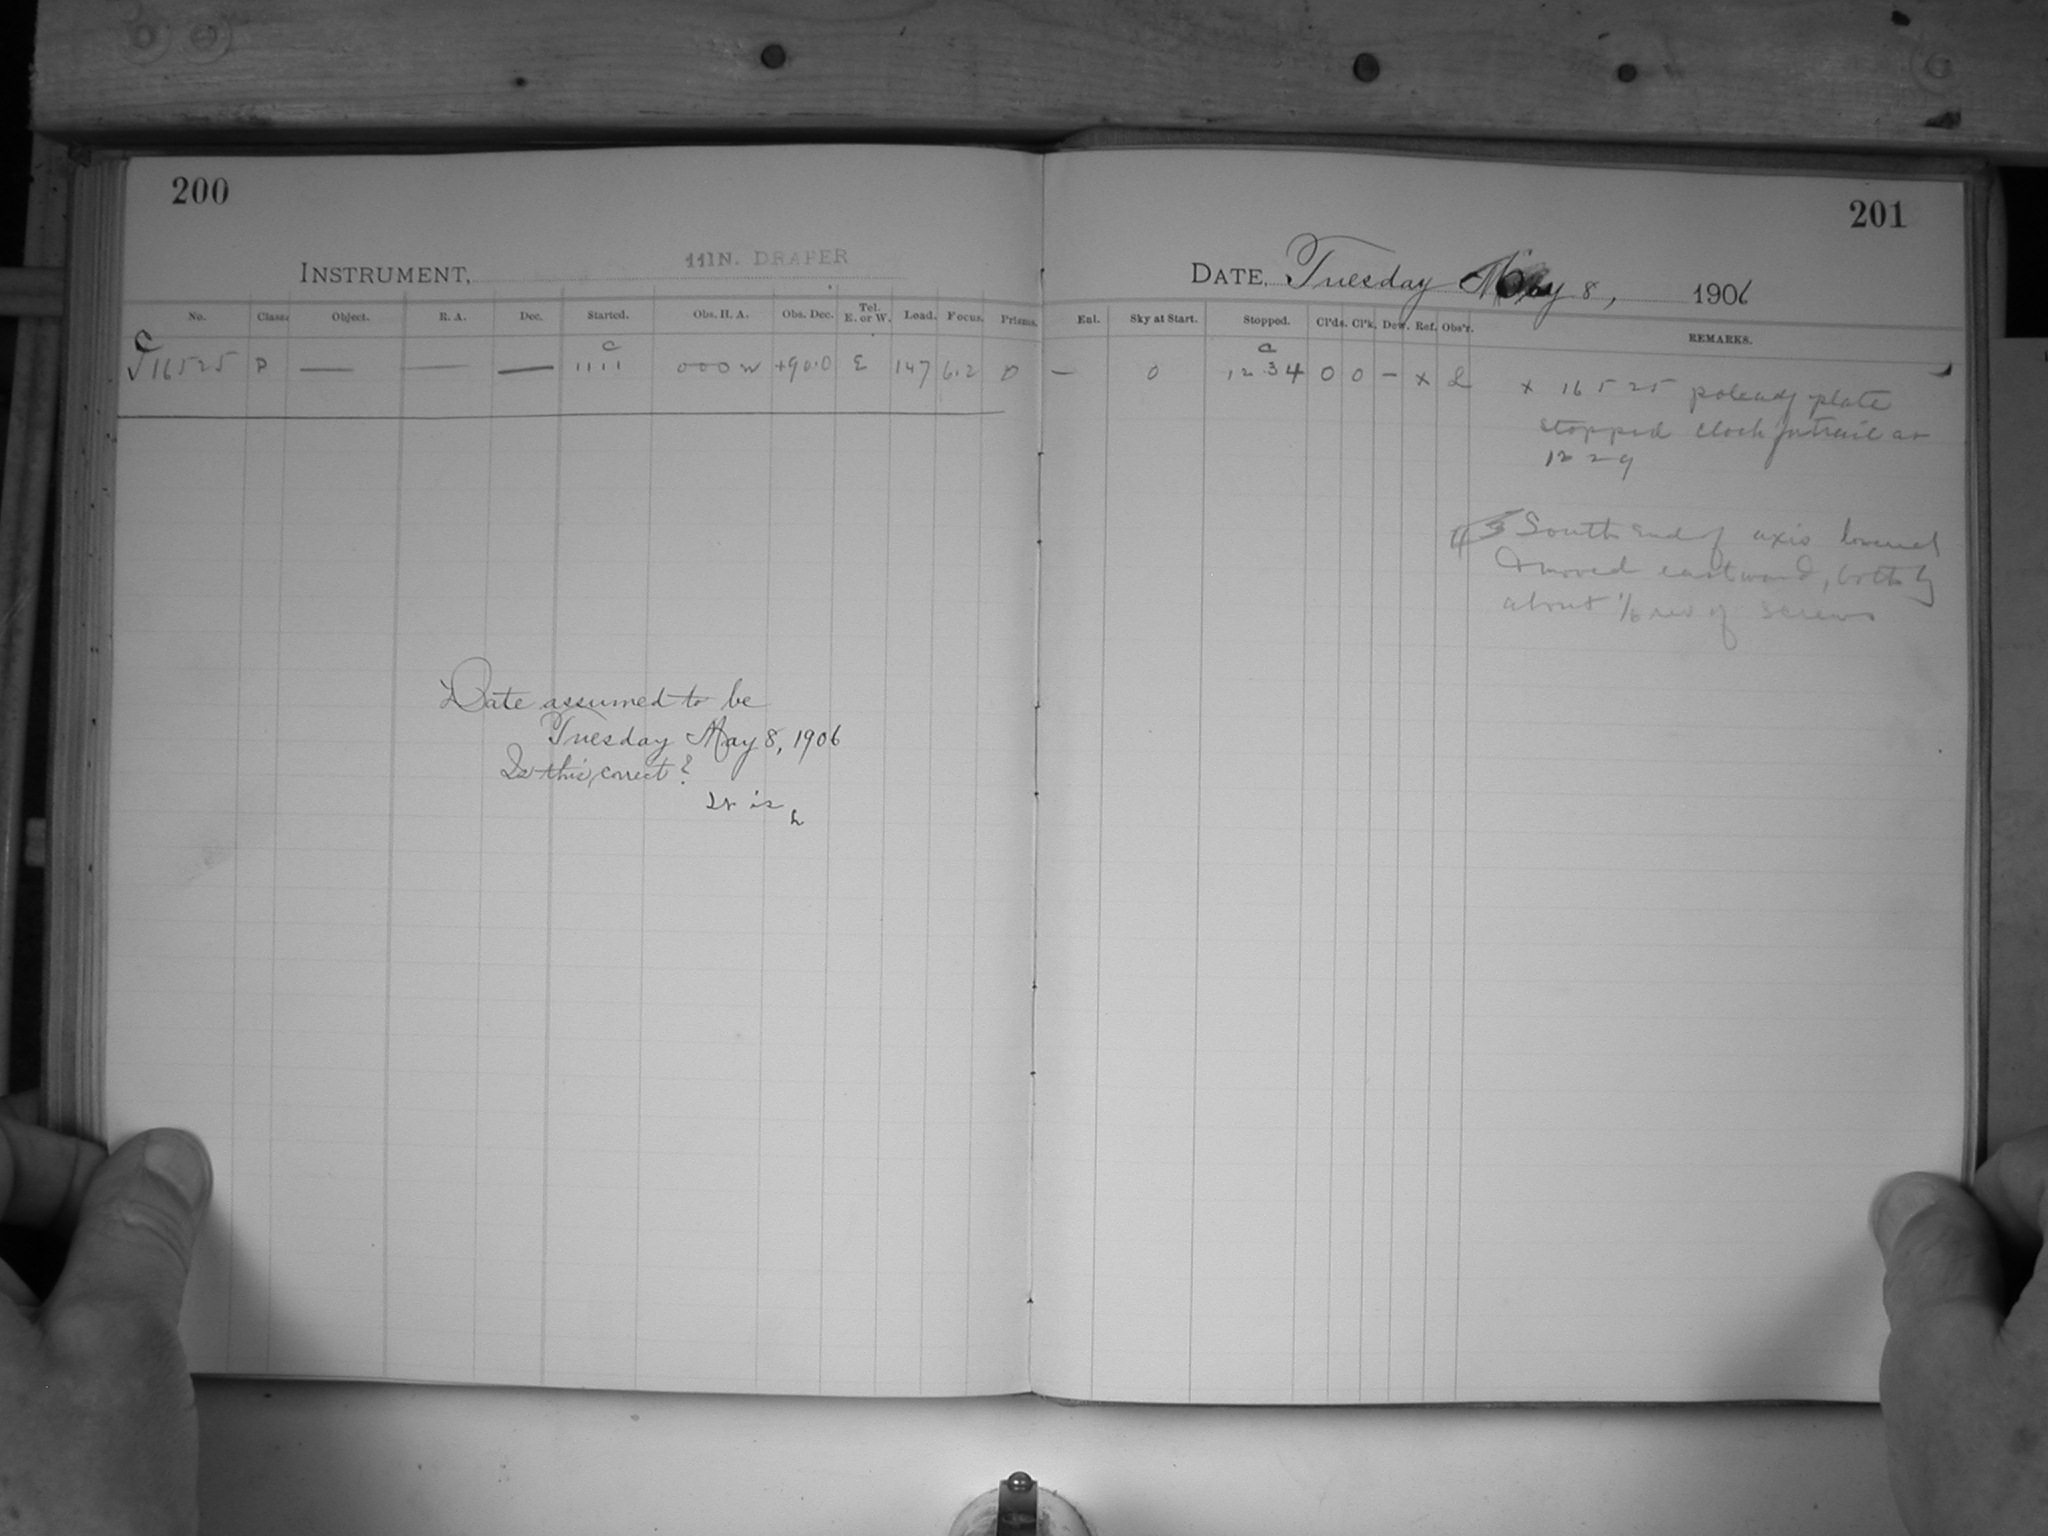 200
INSTRUMENT, 11IN. DRAPER
No. Class. Object. R. A. Dec. Started. Obs. H. A. Obs. Dec. Tel. E. or W. Load. Focus. Prisms.
C C
√16525 P — — — 11 11 000W +90.0 E 147 6.2 0
Date assumed to be
Tuesday May 8, 1906
Is this correct?
It is
L
201
DATE, Tuesday May 8, 1906
Eal. Sky at Start. Stopped. Cl'ds. Cl'k. Dew. Ref. Obs'r. REMARKS.
C
— 0 12 34 0 0 — x L
x 16525 plate
stopped clock at
12 29
South end of axis lowered
& moved eastward, both by
about 1/6 rev of screws